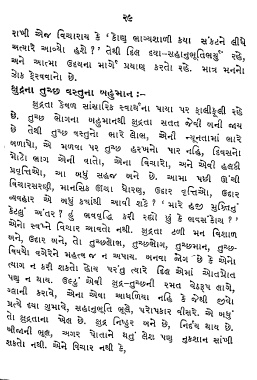 ૨૯
રાખી એજ વિચારાય કે 'કોણ ભાગ્યશાળી કયા સંકટને લીધે
અત્યારે આવ્યો હશે?' તેથી દિલ દયા-સહાનુભૂતિભર્યું રહે,
અને આત્મા ઉદયના માર્ગે પ્રયાણ કરતો રહે. માત્ર મનનો
ઝોક ફેરવવાનો છે.
ક્ષુદ્રના તુચ્છ વસ્તુના બહુમાન :-
ક્ષુદ્રતા કેવળ સાંસારિક સ્વાર્થના પાયા પર ફાલીફૂલી રહે
છે. તુચ્છ ભોગના બહુમાનથી ક્ષુદ્રતા સતત જેવી બની જાય
છે તેથી તુચ્છ વસ્તુનો ભારે લોભ, એની ન્યૂનતામાં ભારે
બળાપો, એ મળવા પર તુચ્છ હરખનો પાર નહિ, દિવસનો
મોટો ભાગ એની વાતો, એના વિચારો, અને એવી હલકી
પ્રવૃત્તિઓ, આ બધું સહજ બને છે. આમા પછી ઊંચી
વિચારસરણી, માનસિક ઊંચા ધોરણ, ઉદાર વૃત્તિઓ, ઉદાર
વ્યવહાર એ બધું ક્યાંથી આવી શકે ? 'મારે હજી મુક્તિનું
કેટલું અંતર ? હું ભવવૃદ્ધિ કરી રહ્યો છું કે ભવસંકોચ ?'
એનો સ્વપ્ને વિચાર આવતો નથી. ક્ષુદ્રતા ટળી મન વિશાળ
બને, ઉદાર બને, તો તુચ્છલોભ, તુચ્છભોગ, તુચ્છમાન, તુચ્છ-
વિષયો વગેરેને મહત્વ જ ન અપાય. બનવા જોગ છે કે એનો
ત્યાગ ન કરી શકતો હોય પરંતુ ત્યારે દિલ એમાં ઓતપ્રોત
પણ ન થાય. ઉલ્ટું એવી ક્ષુદ્ર-તુચ્છની રમત વેઠરૂપ લાગે,
ગ્લાની કરાવે, એના એવા આંધળિયા નહિ કે જેથી જીવો
પ્રત્યે દયા ગુમાવે, સહાનુભૂતિ ભૂલે, પરોપકાર વીસરે. એ બધું
તો ક્ષુદ્રતાના ખેલ છે. ક્ષુદ્ર નિષ્ઠુર બને છે, નિર્દય થાય છે.
બીજાનું ભૂલ, અગર પોતાને થતું લેશ પણ નુકશાન સાંખી
શકતો નથી. એને વિચાર નથી કે,